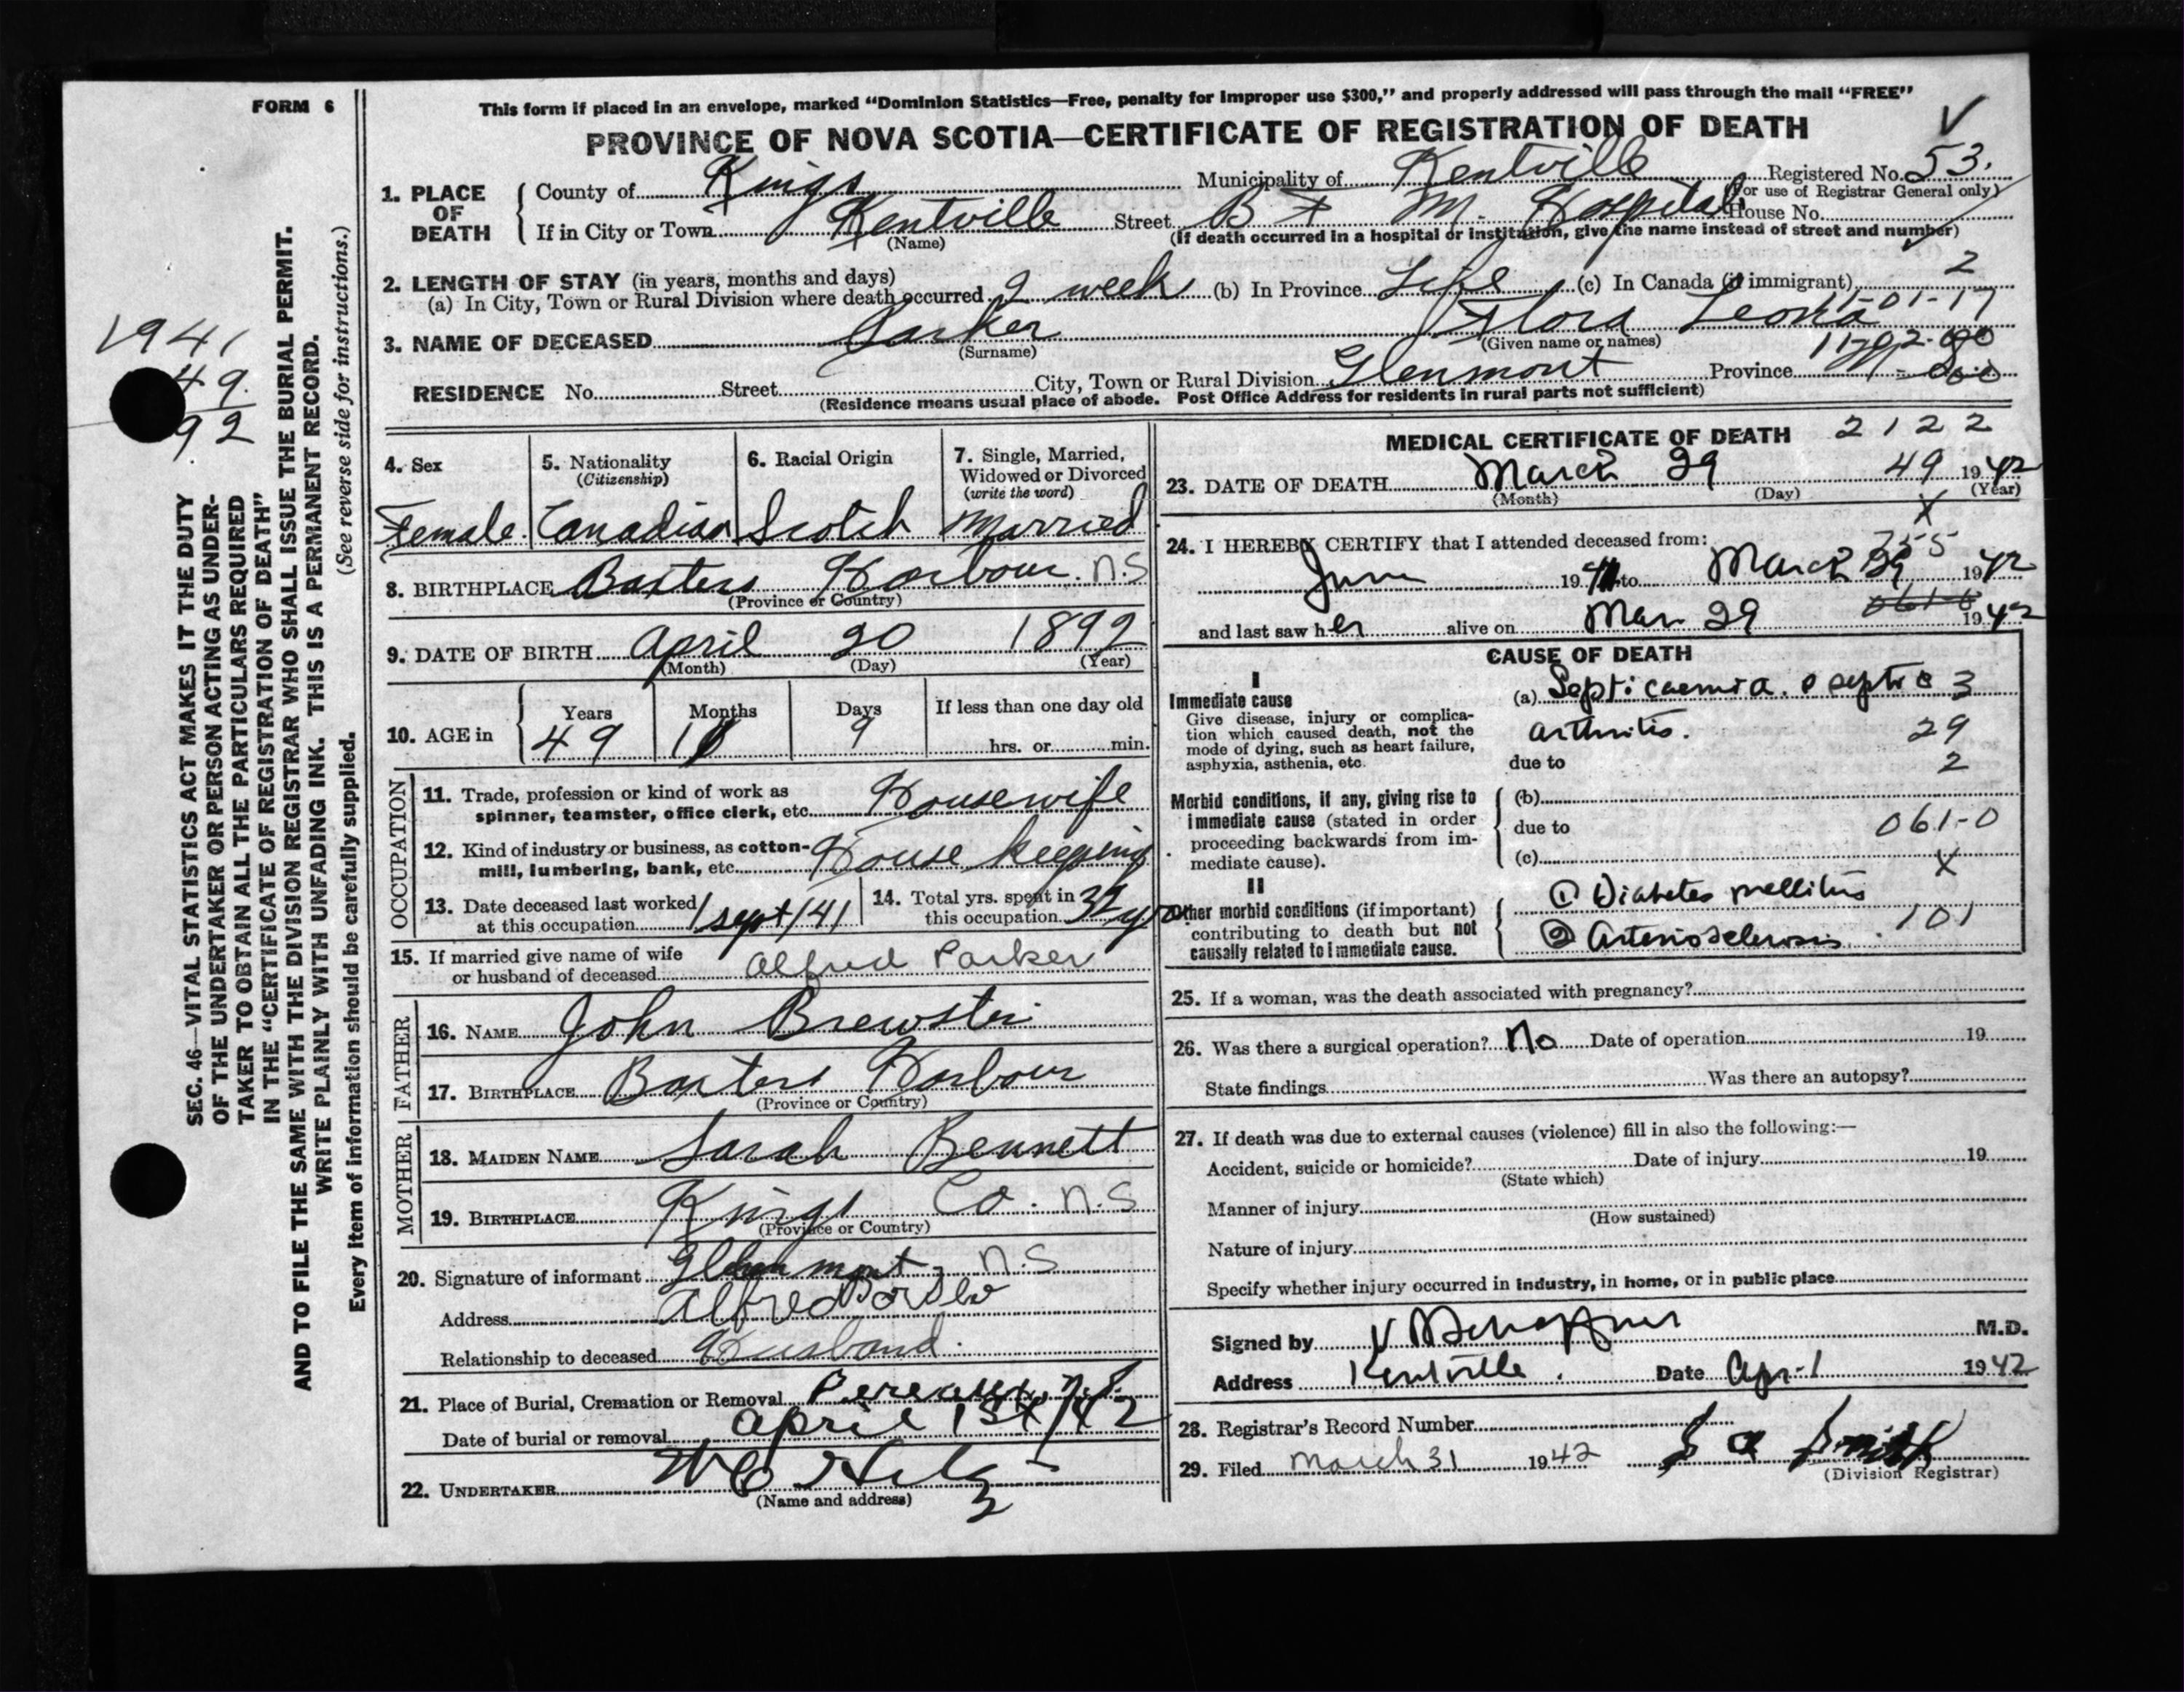 FORM 6
This form if placed in an envelope, marked “Dominion Statistics—Free, penalty for improper use $300,” and properly addressed will pass through the mail “FREE”
PROVINCE OF NOVA SCOTIA—CERTIFICATE OF REGISTRATION OF DEATH
1. PLACE OF DEATH
County of Kings Municipality of Kentville Registered No. 53.
(For use of Registrar General only)
If in City or Town Kentville Street B + M. Hospital House No.
(Name) (If death occurred in a hospital or institution, give the name instead of street and number)
2. LENGTH OF STAY (in years, months and days) 2
(a) In City, Town or Rural Division where death occurred 2 week (b) In Province Life (c) In Canada (if immigrant)
11-01-17
3. NAME OF DECEASED Parker Flora Leona
(Surname) (Given name or names)
RESIDENCE No. Street City, Town or Rural Division Glenmont Province
(Residence means usual place of abode. Post Office Address for residents in rural parts not sufficient)
1941
49
92
SEC. 46—VITAL STATISTICS ACT MAKES IT THE DUTY
OF THE UNDERTAKER OR PERSON ACTING AS UNDER-
TAKER TO OBTAIN ALL THE PARTICULARS REQUIRED
IN THE “CERTIFICATE OF REGISTRATION OF DEATH”
AND TO FILE THE SAME WITH THE DIVISION REGISTRAR WHO SHALL ISSUE THE BURIAL PERMIT.
WRITE PLAINLY WITH UNFADING INK. THIS IS A PERMANENT RECORD.
Every item of information should be carefully supplied. (See reverse side for instructions.)
4. Sex 5. Nationality 6. Racial Origin 7. Single, Married,
(Citizenship) Widowed or Divorced
(write the word)
Female. Canadian Scotch Married
8. BIRTHPLACE Baxters Harbour. N.S
(Province or Country)
9. DATE OF BIRTH April 20 1892
(Month) (Day) (Year)
10. AGE in Years Months Days If less than one day old
49 11 9 hrs. or min.
OCCUPATION
11. Trade, profession or kind of work as
spinner, teamster, office clerk, etc. Housewife
12. Kind of industry or business, as cotton-
mill, lumbering, bank, etc. House keeping
13. Date deceased last worked
at this occupation 1 sept/41
14. Total yrs. spent in
this occupation 32 yrs
15. If married give name of wife
or husband of deceased Alfred Parker
FATHER
16. NAME John Brewster
17. BIRTHPLACE Baxters Harbour
(Province or Country)
MOTHER
18. MAIDEN NAME Sarah Bennett
19. BIRTHPLACE Kings Co. N.S
(Province or Country)
20. Signature of informant Glenmont, N.S
Address Alfred Parker
Relationship to deceased Husband.
21. Place of Burial, Cremation or Removal Pereaux, N.S.
Date of burial or removal April 1st/42
22. UNDERTAKER
(Name and address)
MEDICAL CERTIFICATE OF DEATH 2122
23. DATE OF DEATH March 29 49 1942
(Month) (Day) (Year)
X
24. I HEREBY CERTIFY that I attended deceased from:
June 1941 to March 29 1942
and last saw her alive on Mar 29 1942
CAUSE OF DEATH
I
Immediate cause
Give disease, injury or complica-
tion which caused death, not the
mode of dying, such as heart failure,
asphyxia, asthenia, etc.
(a) Septicaemia. septic 3
arthritis. 29
due to 2
Morbid conditions, if any, giving rise to
immediate cause (stated in order
proceeding backwards from im-
mediate cause).
(b)
due to 061-0
(c) X
II
Other morbid conditions (if important)
contributing to death but not
causally related to immediate cause.
① Diabetes mellitus
② Arteriosclerosis. 101
25. If a woman, was the death associated with pregnancy?
26. Was there a surgical operation? No Date of operation 19
State findings Was there an autopsy?
27. If death was due to external causes (violence) fill in also the following:—
Accident, suicide or homicide? Date of injury 19
(State which)
Manner of injury
(How sustained)
Nature of injury
Specify whether injury occurred in industry, in home, or in public place
Signed by M.D.
Address Kentville. Date Apr-1 1942
28. Registrar's Record Number
29. Filed March 31 1942 Smith
(Division Registrar)